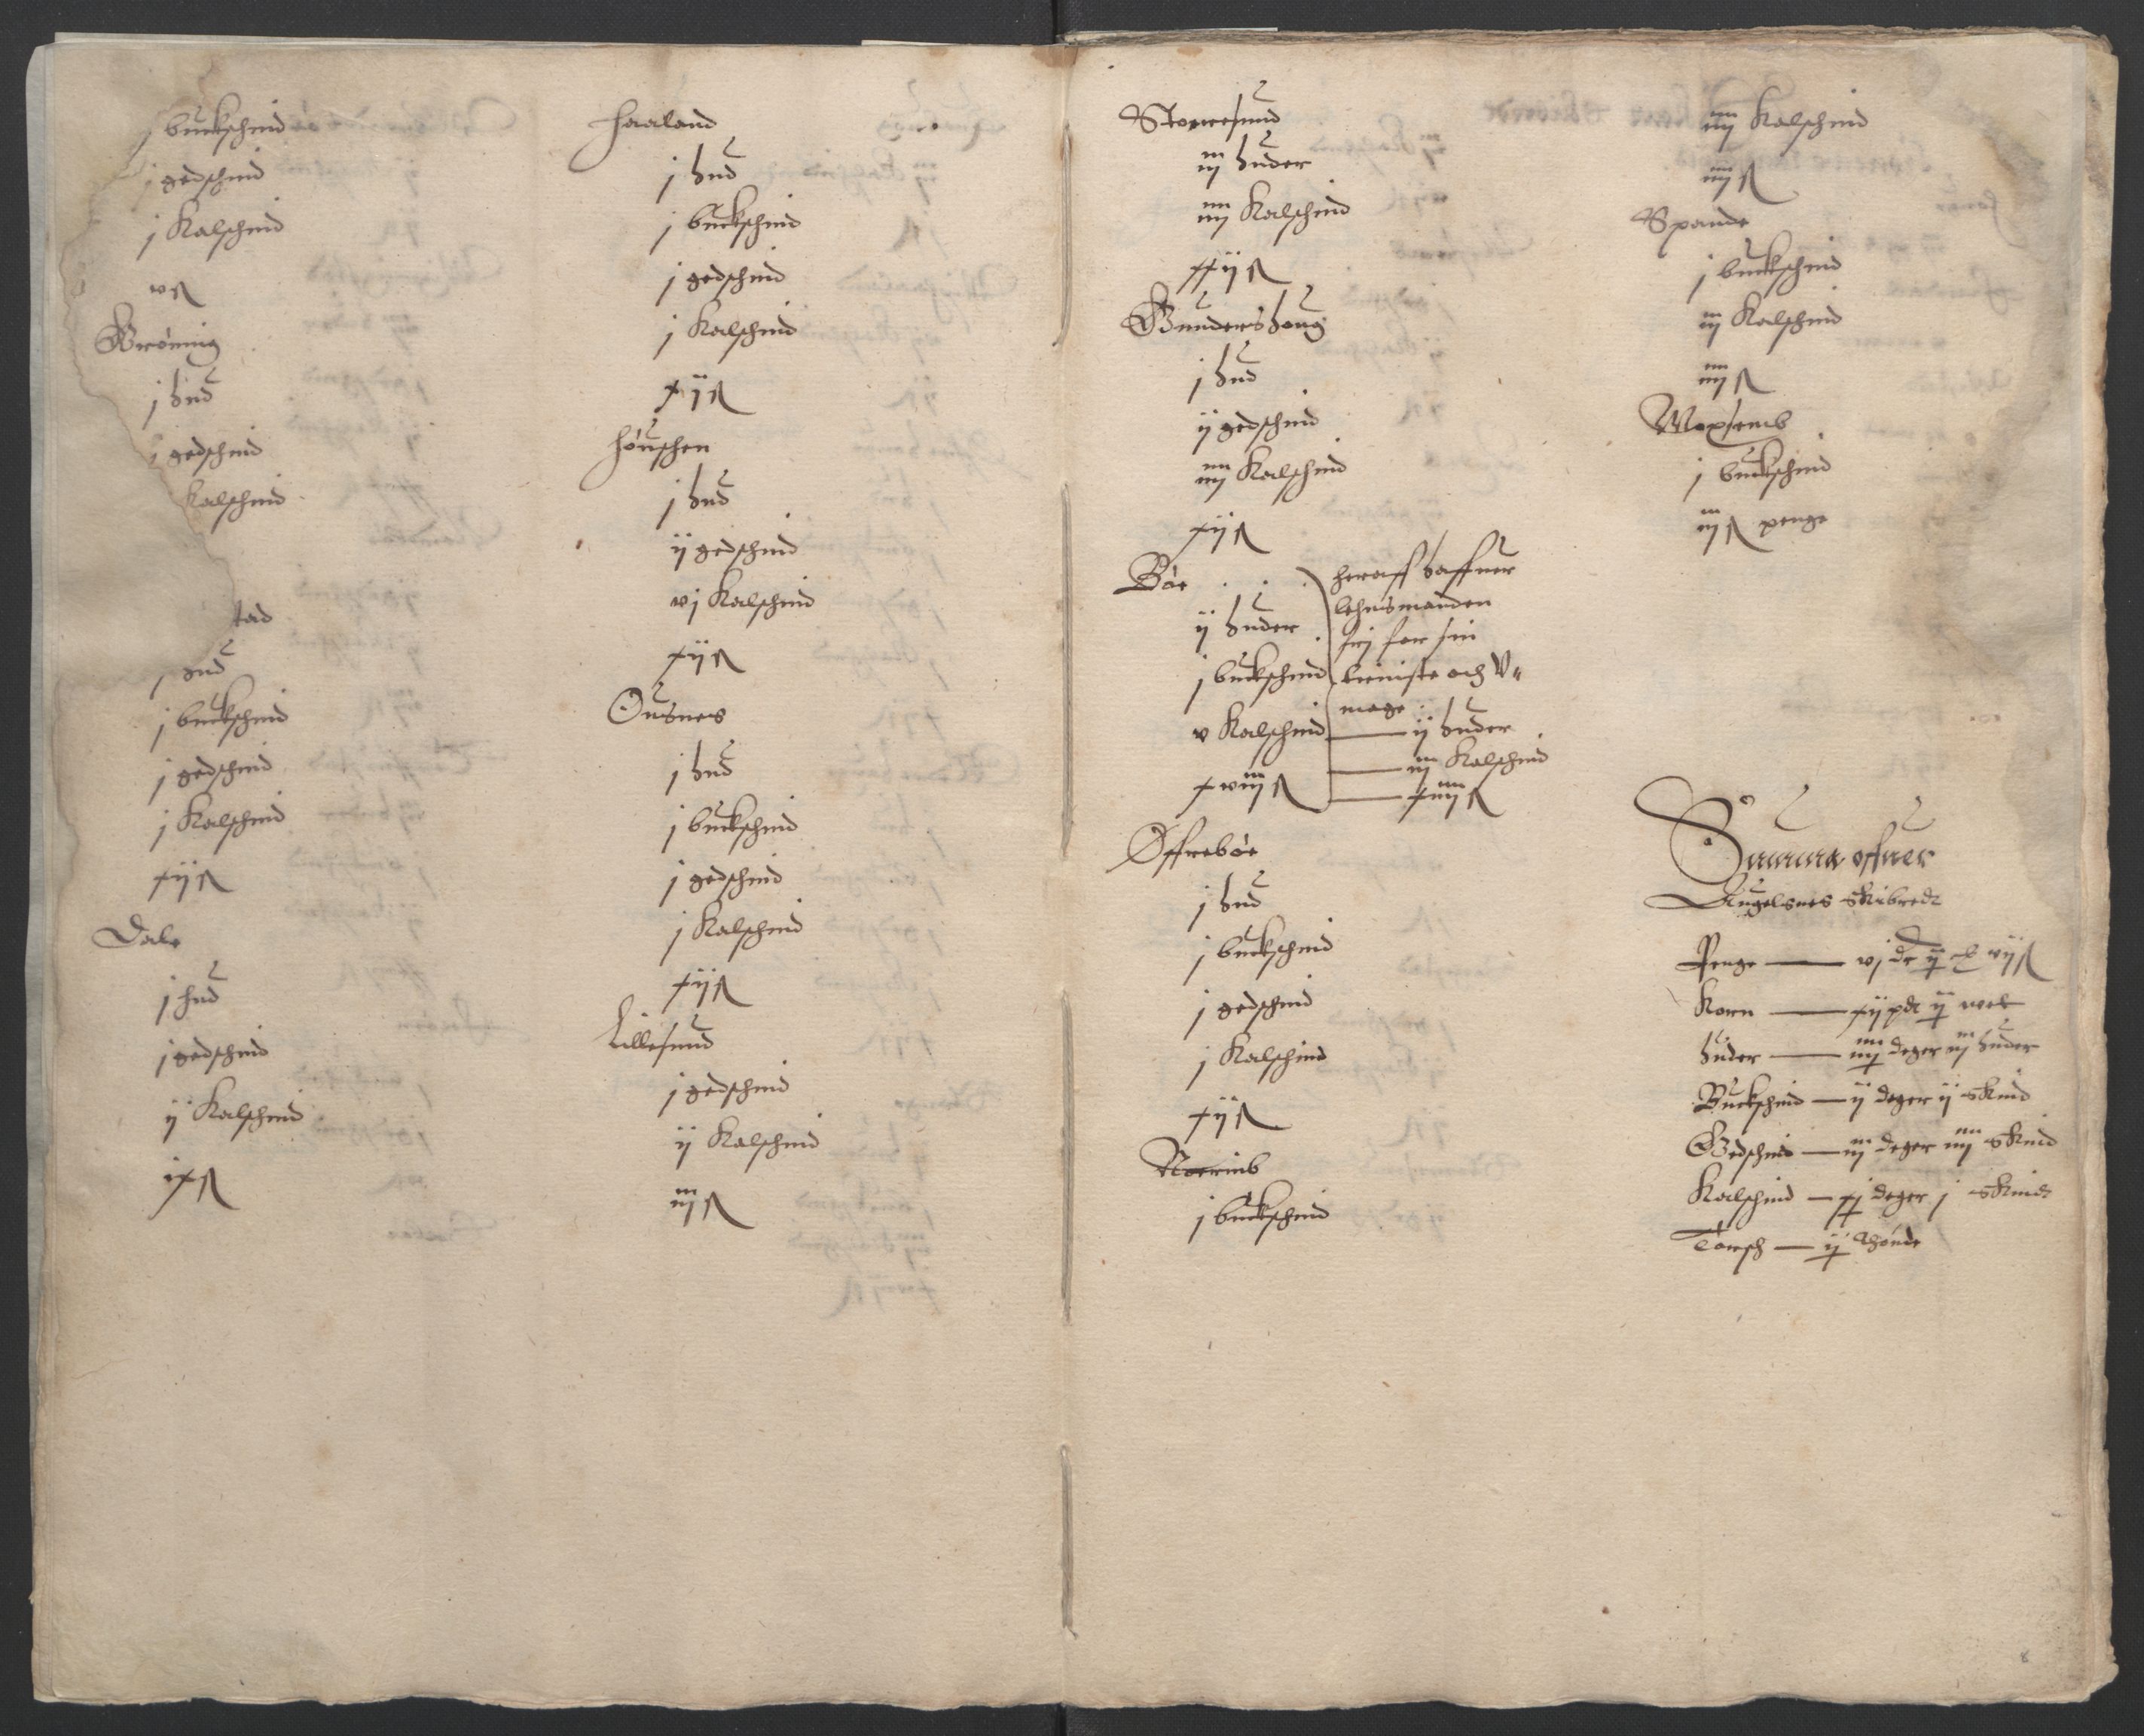 j buckschind
j gedschind
j Kalschind
v ß
Grøning
j hud
j gedschind
Kalschind
stad
j hud
j buckschind
j gedschind
j Kalschind
xij ß
Dale
j hud
j gedschind
ij Kalschind
ix ß
Haaland
j hud
j buckschind
j gedschind
j Kalschind
xij ß
Høuschen
j hud
ij gedschind
vj Kalschind
xij ß
Ousnes
j hud
j buckschind
j gedschind
j Kalschind
xij ß
Lillesund
j gedschind
ij Kalschind
iij ß
Storresund
iij huder
iiij Kalschind
xxij ß
Gundershoug
j hud
ij gedschind
iiij Kalschind
xij ß
Bøe
ij huder
j buckschind
v Kalschind
xviij ß
heraff haffuer
lehnsmanden
frj for sin
tieniste och V=
mage
ij huder
iij Kalschind
xiiij ß
Offrebøe
j hud
j buckschind
j gedschind
j Kalschind
xij ß
Noerimb
j buckschind
iiij Kalschind
iiij ß
Spande
j buckschind
iij Kalschind
iiij ß
Woxsemb
j buckschind
iij ß penge
Summa offuer
Augelsnes skibrede
Penge — vj dr ij vij ß
Korn — xij pdt ij wet
huder — iiij deger iij huder
Buckschind — ij deger ij skind
Gedschind — iij deger iiij skind
Kalschind — xj deger j skindt
Torsch — ij thønde
8